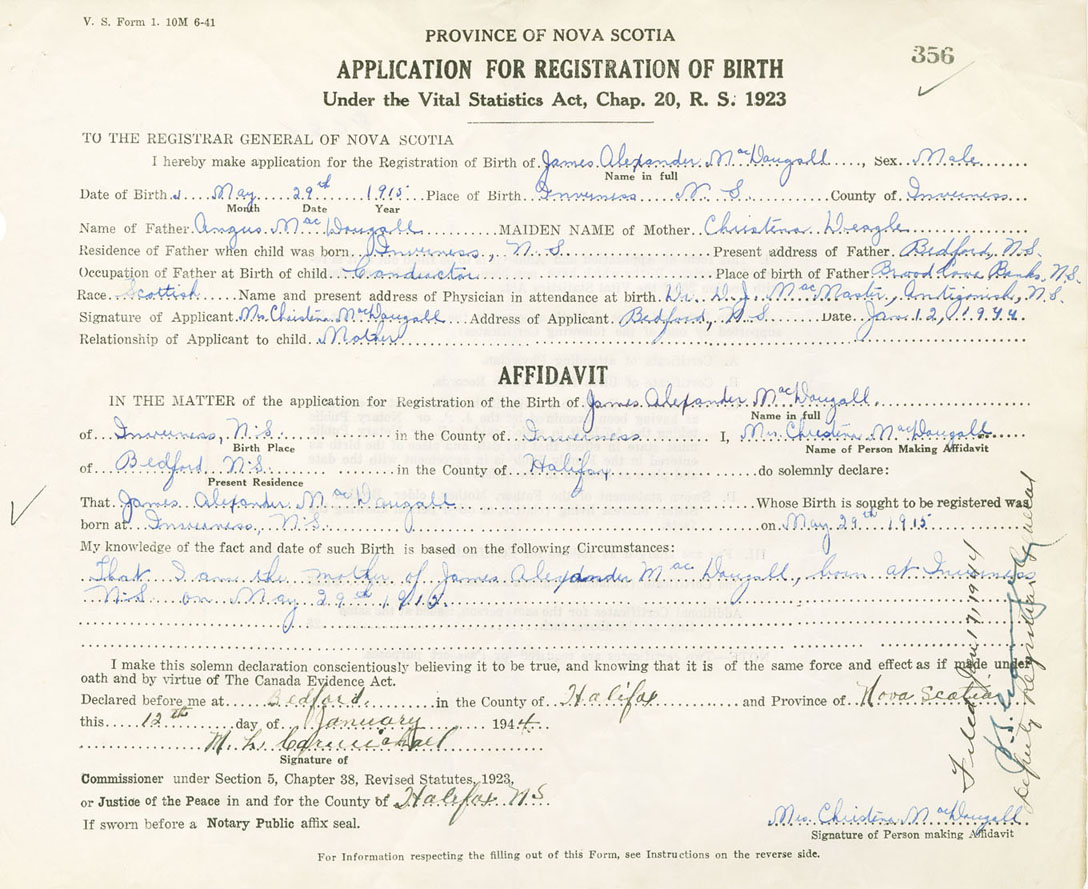 V. S. Form 1. 10M 6-41
PROVINCE OF NOVA SCOTIA
356
APPLICATION FOR REGISTRATION OF BIRTH
Under the Vital Statistics Act, Chap. 20, R. S. 1923
TO THE REGISTRAR GENERAL OF NOVA SCOTIA
I hereby make application for the Registration of Birth of James Alexander MacDougall, Sex Male
Name in full
Date of Birth May 29th 1915 Place of Birth Inverness N. S. County of Inverness
Month Date Year
Name of Father Angus MacDougall MAIDEN NAME of Mother Christena
Residence of Father when child was born Inverness, N. S. Present address of Father Bedford, N.S.
Occupation of Father at Birth of child Conductor Place of birth of Father Broad Cove Banks, N.S.
Race Scottish Name and present address of Physician in attendance at birth Dr. D. J. MacMaster, Antigonish, N.S.
Signature of Applicant Mrs Christena MacDougall Address of Applicant Bedford, N. S. Date Jan. 12, 1944.
Relationship of Applicant to child. Mother
AFFIDAVIT
IN THE MATTER of the application for Registration of the Birth of James Alexander MacDougall.
Name in full
of Inverness, N.S. in the County of Inverness I, Mrs Christena MacDougall
Birth Place Name of Person Making Affidavit
of Bedford N.S. in the County of Halifax, do solemnly declare:
Present Residence
That James Alexander MacDougall Whose Birth is sought to be registered was
born at Inverness, N.S. on May 29th 1915
My knowledge of the fact and date of such Birth is based on the following Circumstances:
That I am the mother of James Alexander MacDougall, born at Inverness
N.S. on May 29th 1915.
I make this solemn declaration conscientiously believing it to be true, and knowing that it is of the same force and effect as if made under
oath and by virtue of The Canada Evidence Act.
Declared before me at Bedford. in the County of Halifax and Province of Nova Scotia
this 12th day of January 1944
M. L. Carmichael
Signature of
Commissioner under Section 5, Chapter 38, Revised Statutes, 1923,
or Justice of the Peace in and for the County of Halifax N S
If sworn before a Notary Public affix seal.
Mrs. Christena MacDougall
Signature of Person making Affidavit
For Information respecting the filling out of this Form, see Instructions on the reverse side.
Filed Jan 17/1944
Deputy Registrar General